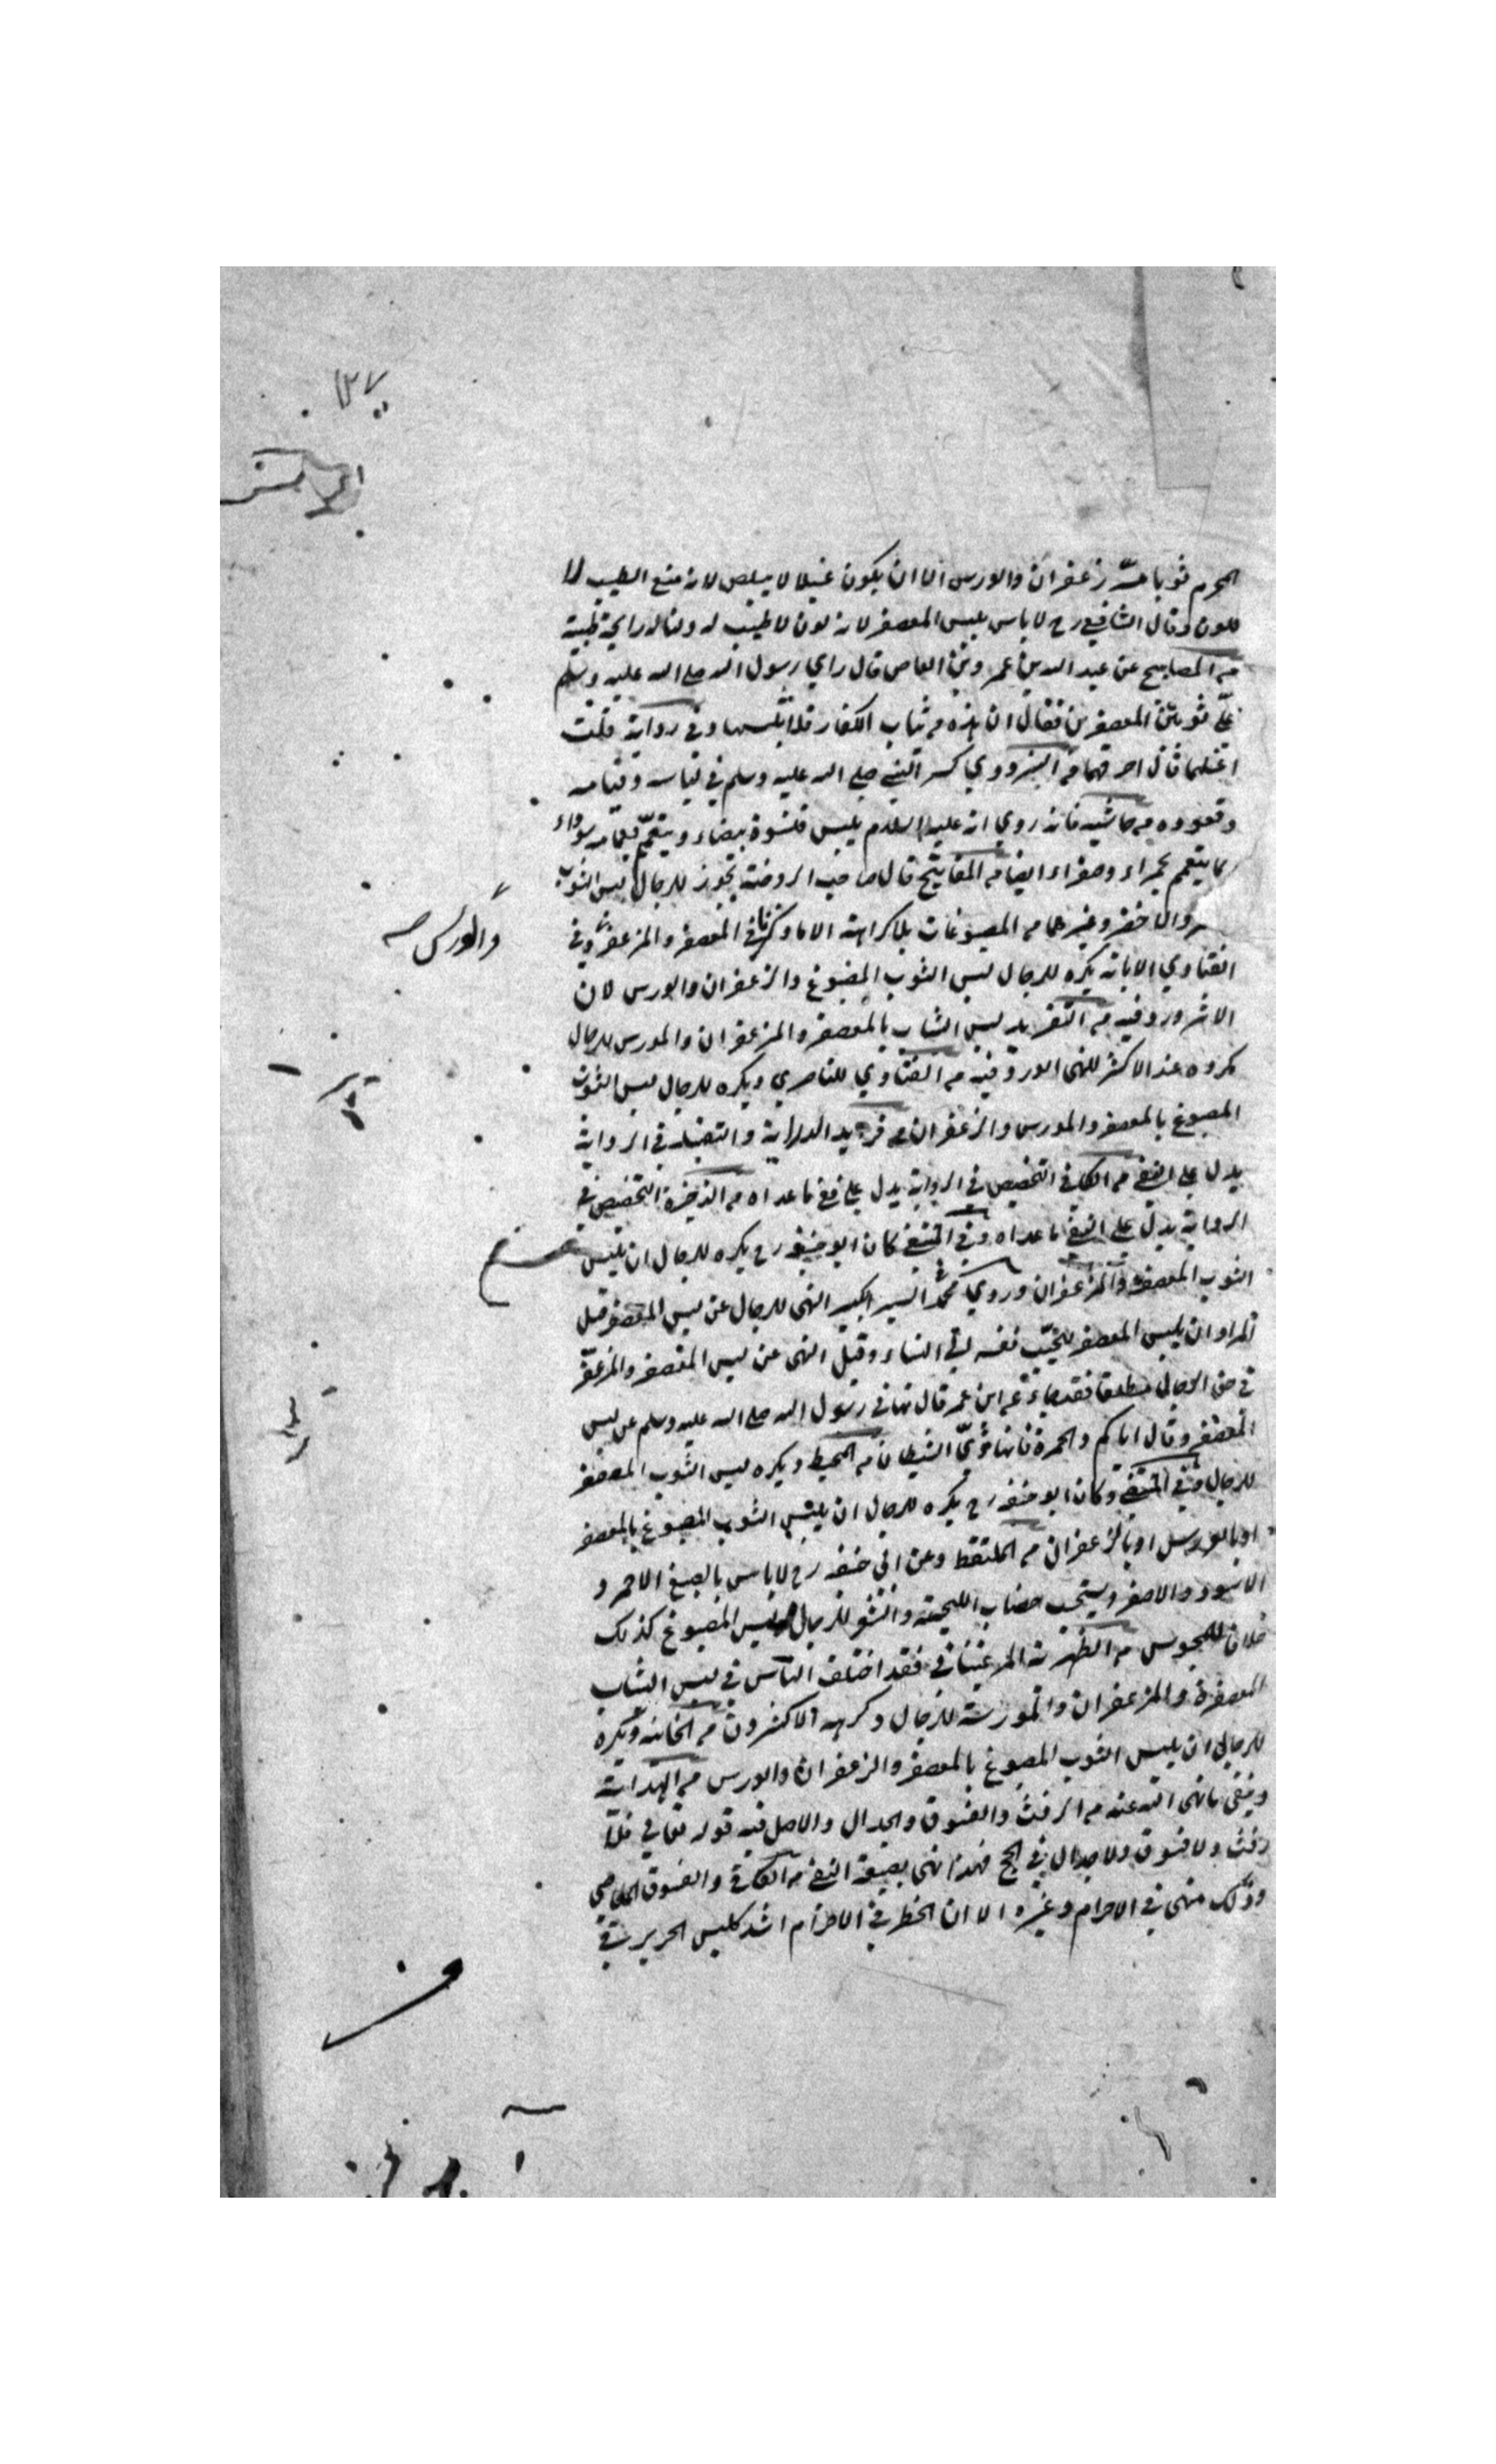 ١٣٧
المحرم ثوبا مسه زعفران والورس الا ان يكون غسيلا لا لانه منع الطيب لا
للون وقال الشافعي رح لا باس بلبس المعصفر لانه لون لا طيب له ولنا له رايحة طيبة
من المصابيح عن عبد الله بن عمرو بن العاص قال راي رسول الله صلى الله عليه وسلم
علي ثوبين المعصفرين فقال ان هذه من ثياب الكفار فلا تلبسها وفي رواية قلت
اغسلهما قال احرقهما من النبي صلى الله عليه وسلم في لباسه وقيامه
وقعوده من حاشيه فانه روي انه عليه السلام يلبس قلنسوة بيضاء ويتعمم بعمامة سوداء
كما يتعمم بحمراء وصفراء ايضا من المفاتيح قال صاحب الروضة يجوز للرجال لبس الثوب
والاخضر وغيرهما من المصبوغات بلا كراهة الا ما ذكرنا في المعصفر والمزعفر وفي
والورس صح
الفتاوي يكره للرجال لبس الثوب المصبوغ والزعفران والورس لان
الاثر ورد فيه من التفريد لبس الثياب بالمعصفر والمزعفران والمورس للرجال
مكروه عند الاكثر للنهى الورد فيه من الفتاوي للناصري ويكره للرجال لبس الثوب
المصبوغ بالمعصفر والمورس والزعفران من الدراية والتقييد في الرواية
يدل على النفي من الكافي التخصيص في الرواية يدل على نفي ما عداه من الذخيرة التخصيص في
الرواية يدل على النفي ما عداه وفي كان ابو حنيفه رح يكره للرجال ان يلبس
الثوب المعصفر والمزعفران وروي محمد السير الكبير النهى للرجال عن لبس المعصفر قيل
المراد ان يلبس المعصفر نفسه الى النساء وقيل النهى عن لبس المعصفر والمزعفر
في حق الرجال مطلقا فقد جاء عن ابن عمر قال نهاني رسول الله صلى الله عليه وسلم عن لبس
المعصفر وقال اياكم والحمرة فانها زي الشيطان من المحيط ويكره لبس الثوب المعصفر
للرجال وفي وكان ابو حنيفه رح يكره للرجال ان يلبس الثوب المصبوغ بالمعصفر
او بالورس او بالزعفران من الملتقط وعن ابي حنيفه رح لا باس بالصبغ الاحمر و
الاسود والاصفر ويستحب خضاب اللحية للرجال المصبوغ كذلك
خلافا للمجوس من فقد اختلف الناس في لبس الثياب
المعصفرة والمزعفران والمورسة للرجال وكرهه الاكثرون من الخانيه ويكره
للرجال ان يلبس الثوب المصبوغ بالمعصفر والزعفران والورس من الهداية
ما نهى الله عنه من الرفث والفسوق والجدال والاصل فيه قوله تعالى فلا
رفث ولا فسوق ولا جدال في الحج فهذا نهى بصيغة النفي من الكافي والفسوق المعاصي
وذلك منهى في الاحرام وغيره الا ان الحظر في الاحرام اشد كلبس الحرير في